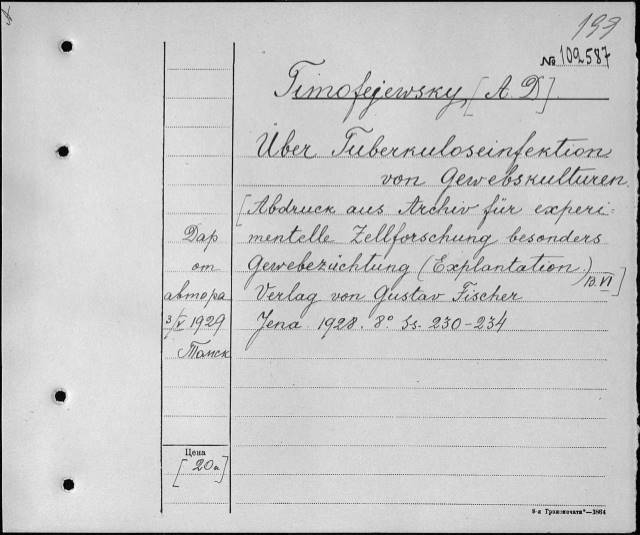 199
№ 102587
Timofejewsky [A. D]
Über Tuberkuloseinfektion
von Gewebskulturen.
[Abdruck aus Archiv für experi-
mentelle Zellforschung besonders
Gewebezüchtung (Explantation.) B. VI]
Verlag von Gustav Fischer
Jena. 1928. 8° Ss. 230-234
Дар
от
автора
3/V 1929
Томск
Цена
[20к]
5-я Гранпечать"—1864